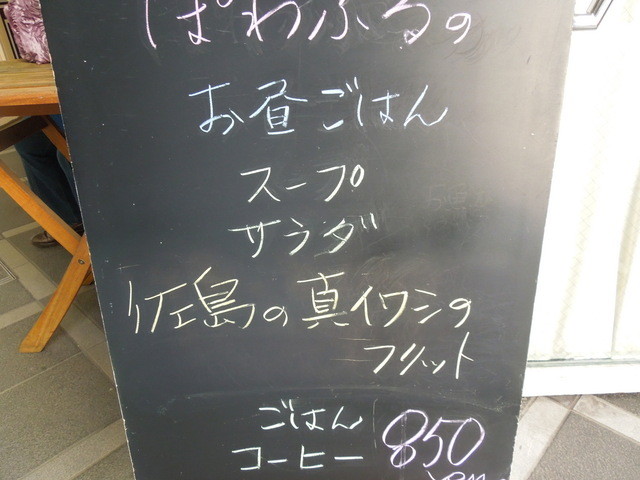 ぱわふるの
お昼ごはん
スープ
サラダ
佐島の真イワシの
フリット
ごはん
コーヒー
850